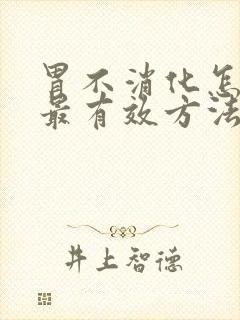 胃不消化怎
最有效方法
井上智德